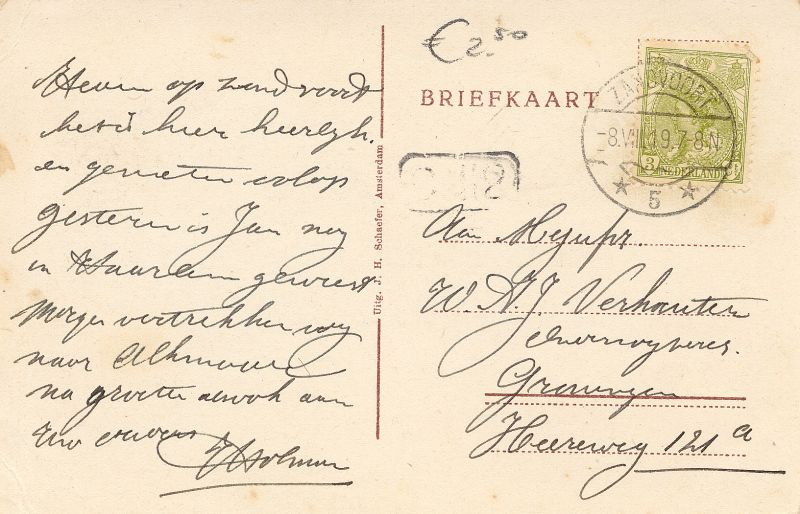 € 2.50
BRIEFKAART
ZANDVOORT
8.VII.19.7-8N
5
NEDERLAND
Heven op zandvoort
het is hier heerlijk.
en genieten volop
Gisteren is Jan nog
in Haarlem geweest
Morgen vertrekken wij
naar Alkmaar
na groeten ook aan
Uw ouders
Uitg. J. H. Schaefer, Amsterdam
Aan Mejufr.
W. A. J. Verhouten
Onderwyseres.
Groningen
Heereweg 121a